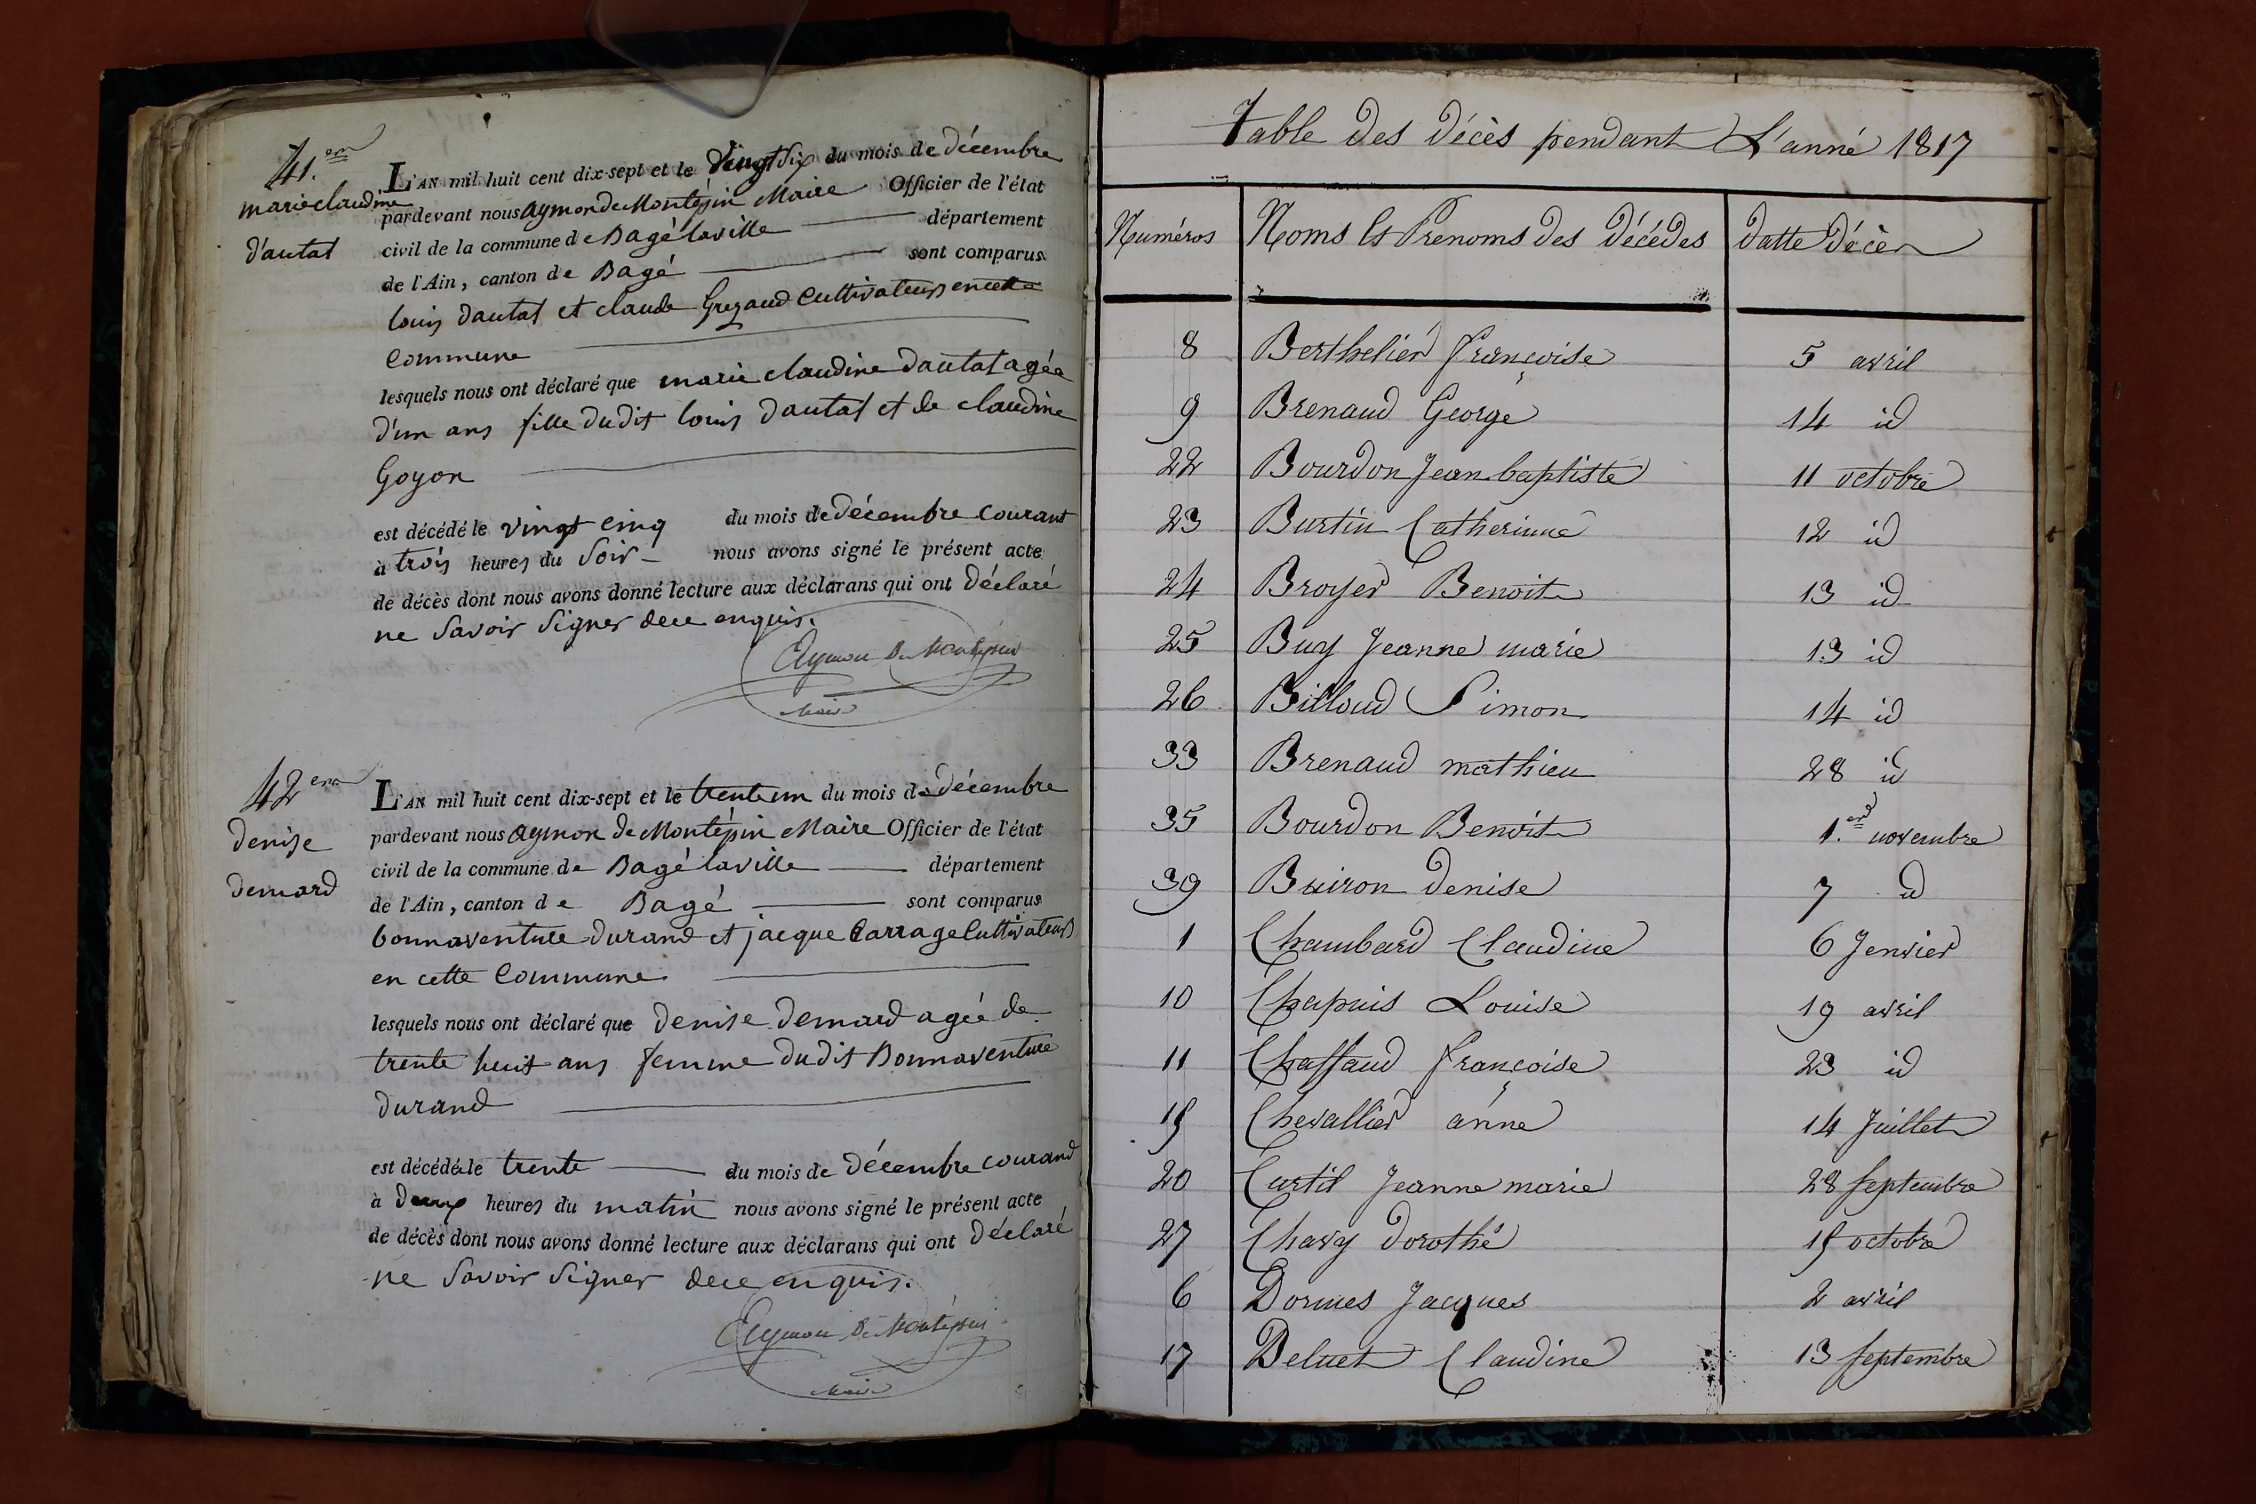 41.em
marie claudine
d'autat
L'AN mil huit cent dix-sept et le vingt six du mois de décembre
pardevant nous aymon de Montépin Maire Officier de l'état
civil de la commune de Bagé laville département
de l'Ain, canton de Bagé sont comparus
louis dautat et claude Grezaud Cultivateurs en cette
Commune
lesquels nous ont déclaré que marie claudine dautat agée
d'un ans fille dudit louis dautat et de claudine
Goyon
est décédé le vingt cinq du mois de décembre courant
à trois heures du Soir nous avons signé le présent acte
de décès dont nous avons donné lecture aux déclarans qui ont déclaré
ne Savoir Signer dece enquis.
Aymon De Montépin
Maire
42em
denise
demard
L'AN mil huit cent dix-sept et le trente un du mois de décembre
pardevant nous aymon de Montépin Maire Officier de l'état
civil de la commune de Bagé laville département
de l'Ain, canton de Bagé sont comparus
bonnaventure durand et jacque Carrage Cultivateurs
en cette Commune
lesquels nous ont déclaré que denise demard agée de
trente huit ans femme dudit Bonnaventure
durand
est décédé le trente du mois de décembre courand
à deux heures du matin nous avons signé le présent acte
de décès dont nous avons donné lecture aux déclarans qui ont déclaré
ne Savoir Signer dece enquis.
Aymon De Montépin
Maire
Table des décès pendant L'anné 1817
Numéros Noms Et Prenoms des décédes datte décès
8 Berthelier françoise 5 avril
9 Brenaud George 14 id
22 Bourdon Jean baptiste 11 octobre
23 Burtin Catherinne 12 id
24 Broyer Benoit 13 id
25 Buy Jeanne marie 13 id
26 Billoud Simon 14 id
33 Brenaud mathieu 28 id
35 Bourdon Benoit 1.er novembre
39 Buiron denise 7 id
1 Chambard Claudine 6 Jenvier
10 Chapuis Louise 19 avril
11 Chaffaud françoise 23 id
15 Chevallier anne 14 Juillet
20 Curtil Jeanne marie 28 septembre
27 Chavy dorothé 15 octobre
6 Dormes Jacques 2 avril
17 Deluet Claudine 13 septembre